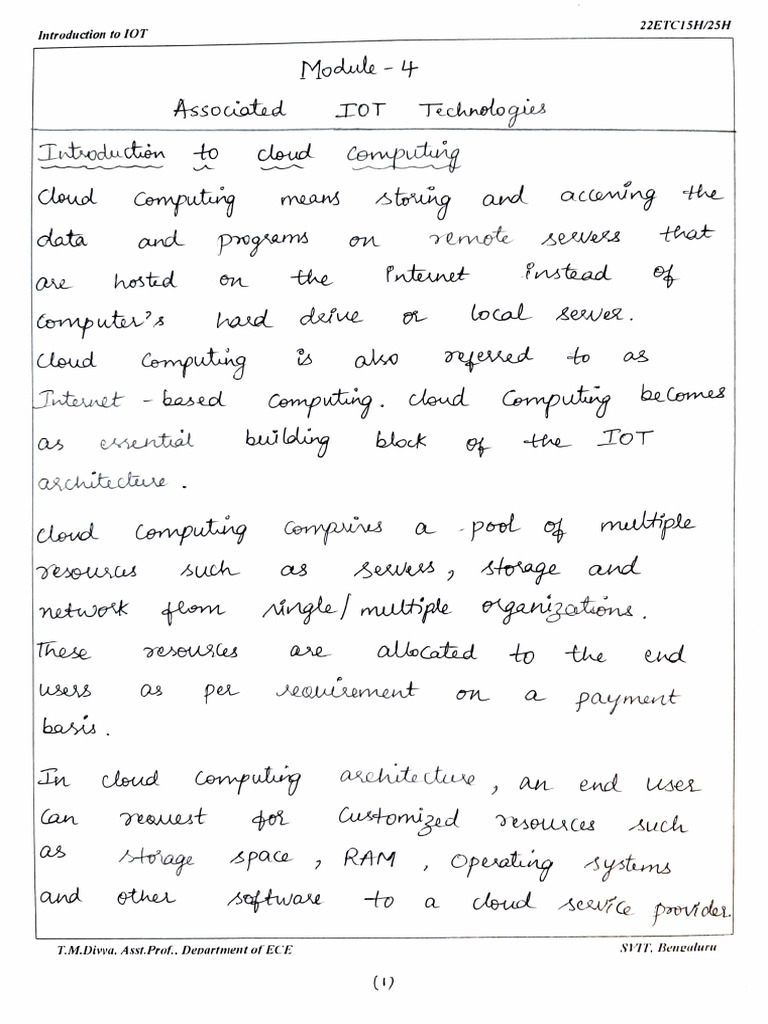 Introduction to IOT 22ETC15H/25H
Module - 4
Associated IOT Technologies
Introduction to cloud computing
Cloud Computing means storing and accessing the
data and programs on remote servers that
are hosted on the internet instead of
computer's hard drive or local server.
Cloud Computing is also referred to as
Internet - based computing. Cloud Computing becomes
as essential building block of the IOT
architecture.
Cloud Computing comprises a pool of multiple
resources such as servers, storage and
network from single/multiple organizations.
These resources are allocated to the end
users as per requirement on a payment
basis.
In cloud computing architecture, an end user
can request for customized resources such
as storage space, RAM, Operating systems
and other software to a cloud service provider.
T.M.Divya, Asst.Prof., Department of ECE SVIT, Bengaluru
(1)